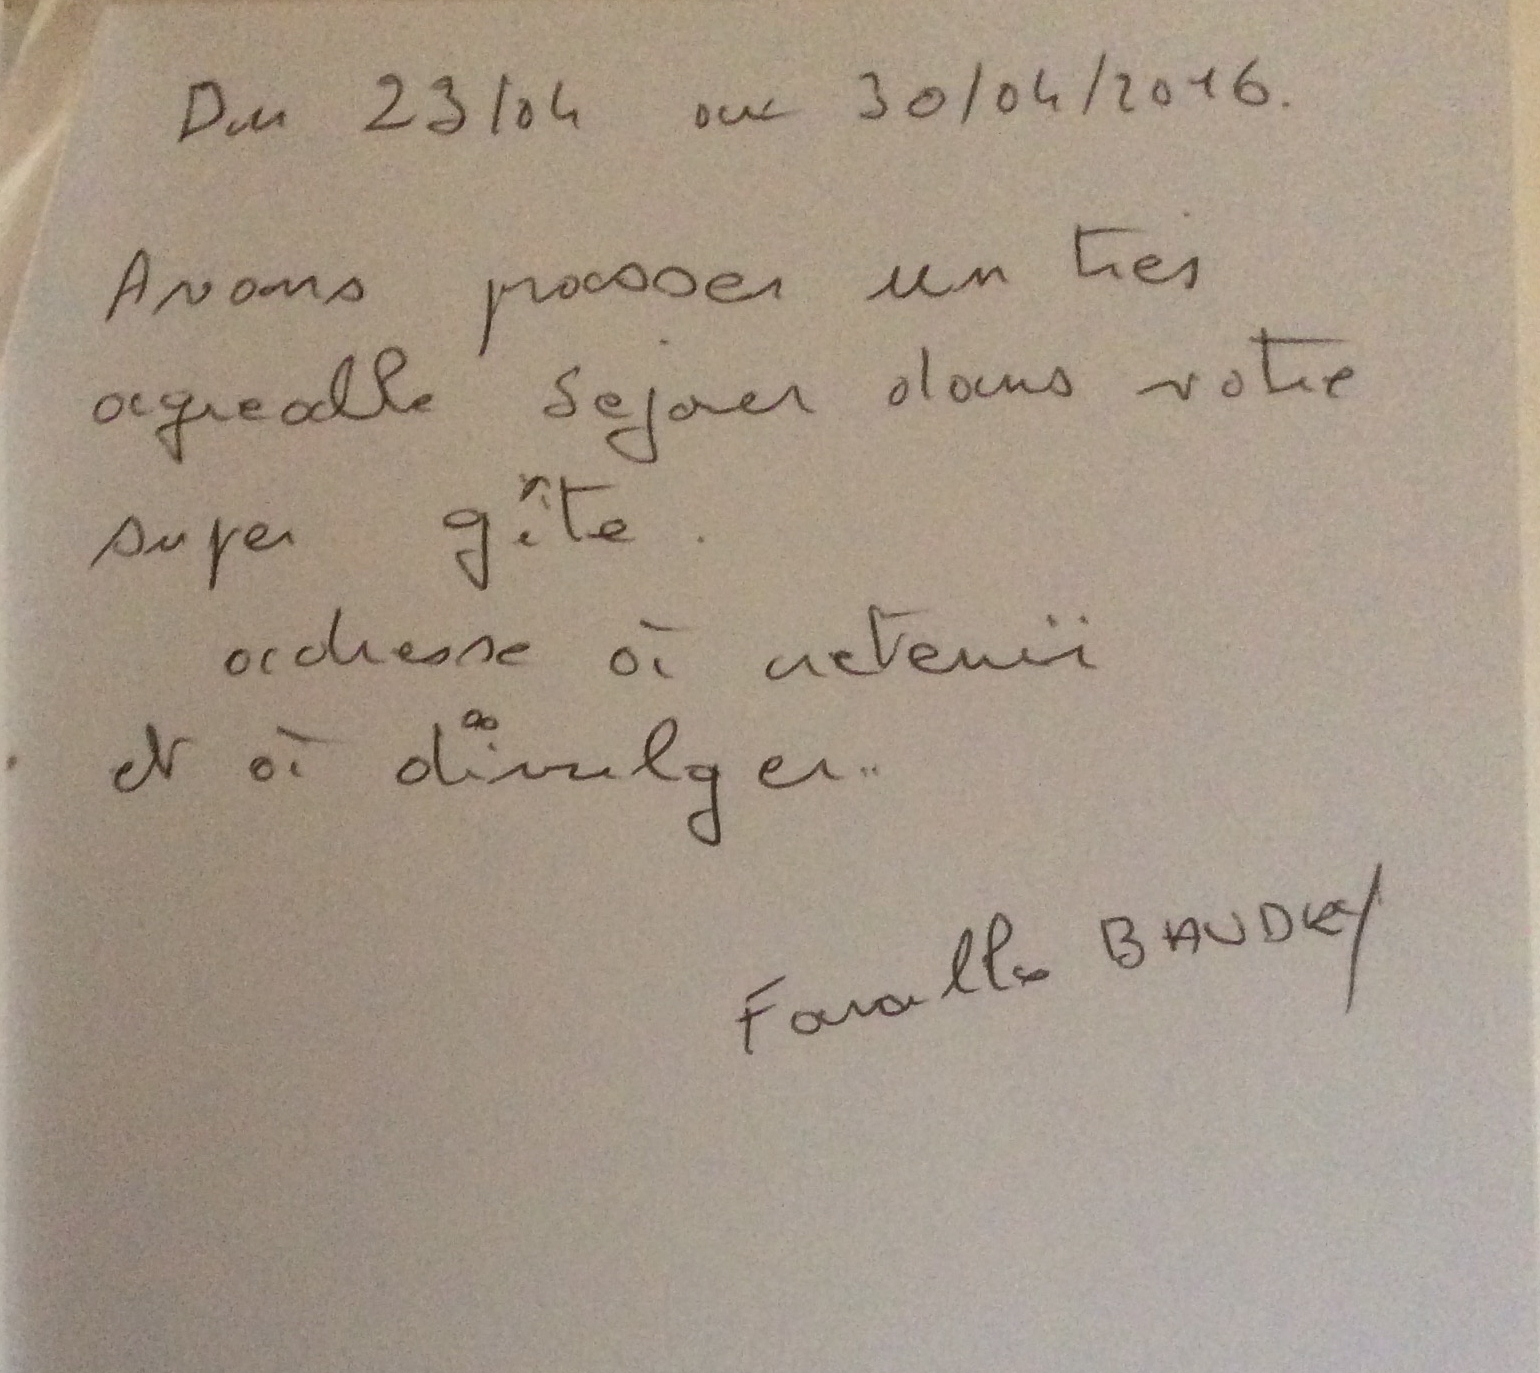 Du 23/04 au 30/04/2016.
Avons passer un tres
agreable sejour dans votre
super gîte.
adresse à retenir
et à divulger..
Famille BAUDRY